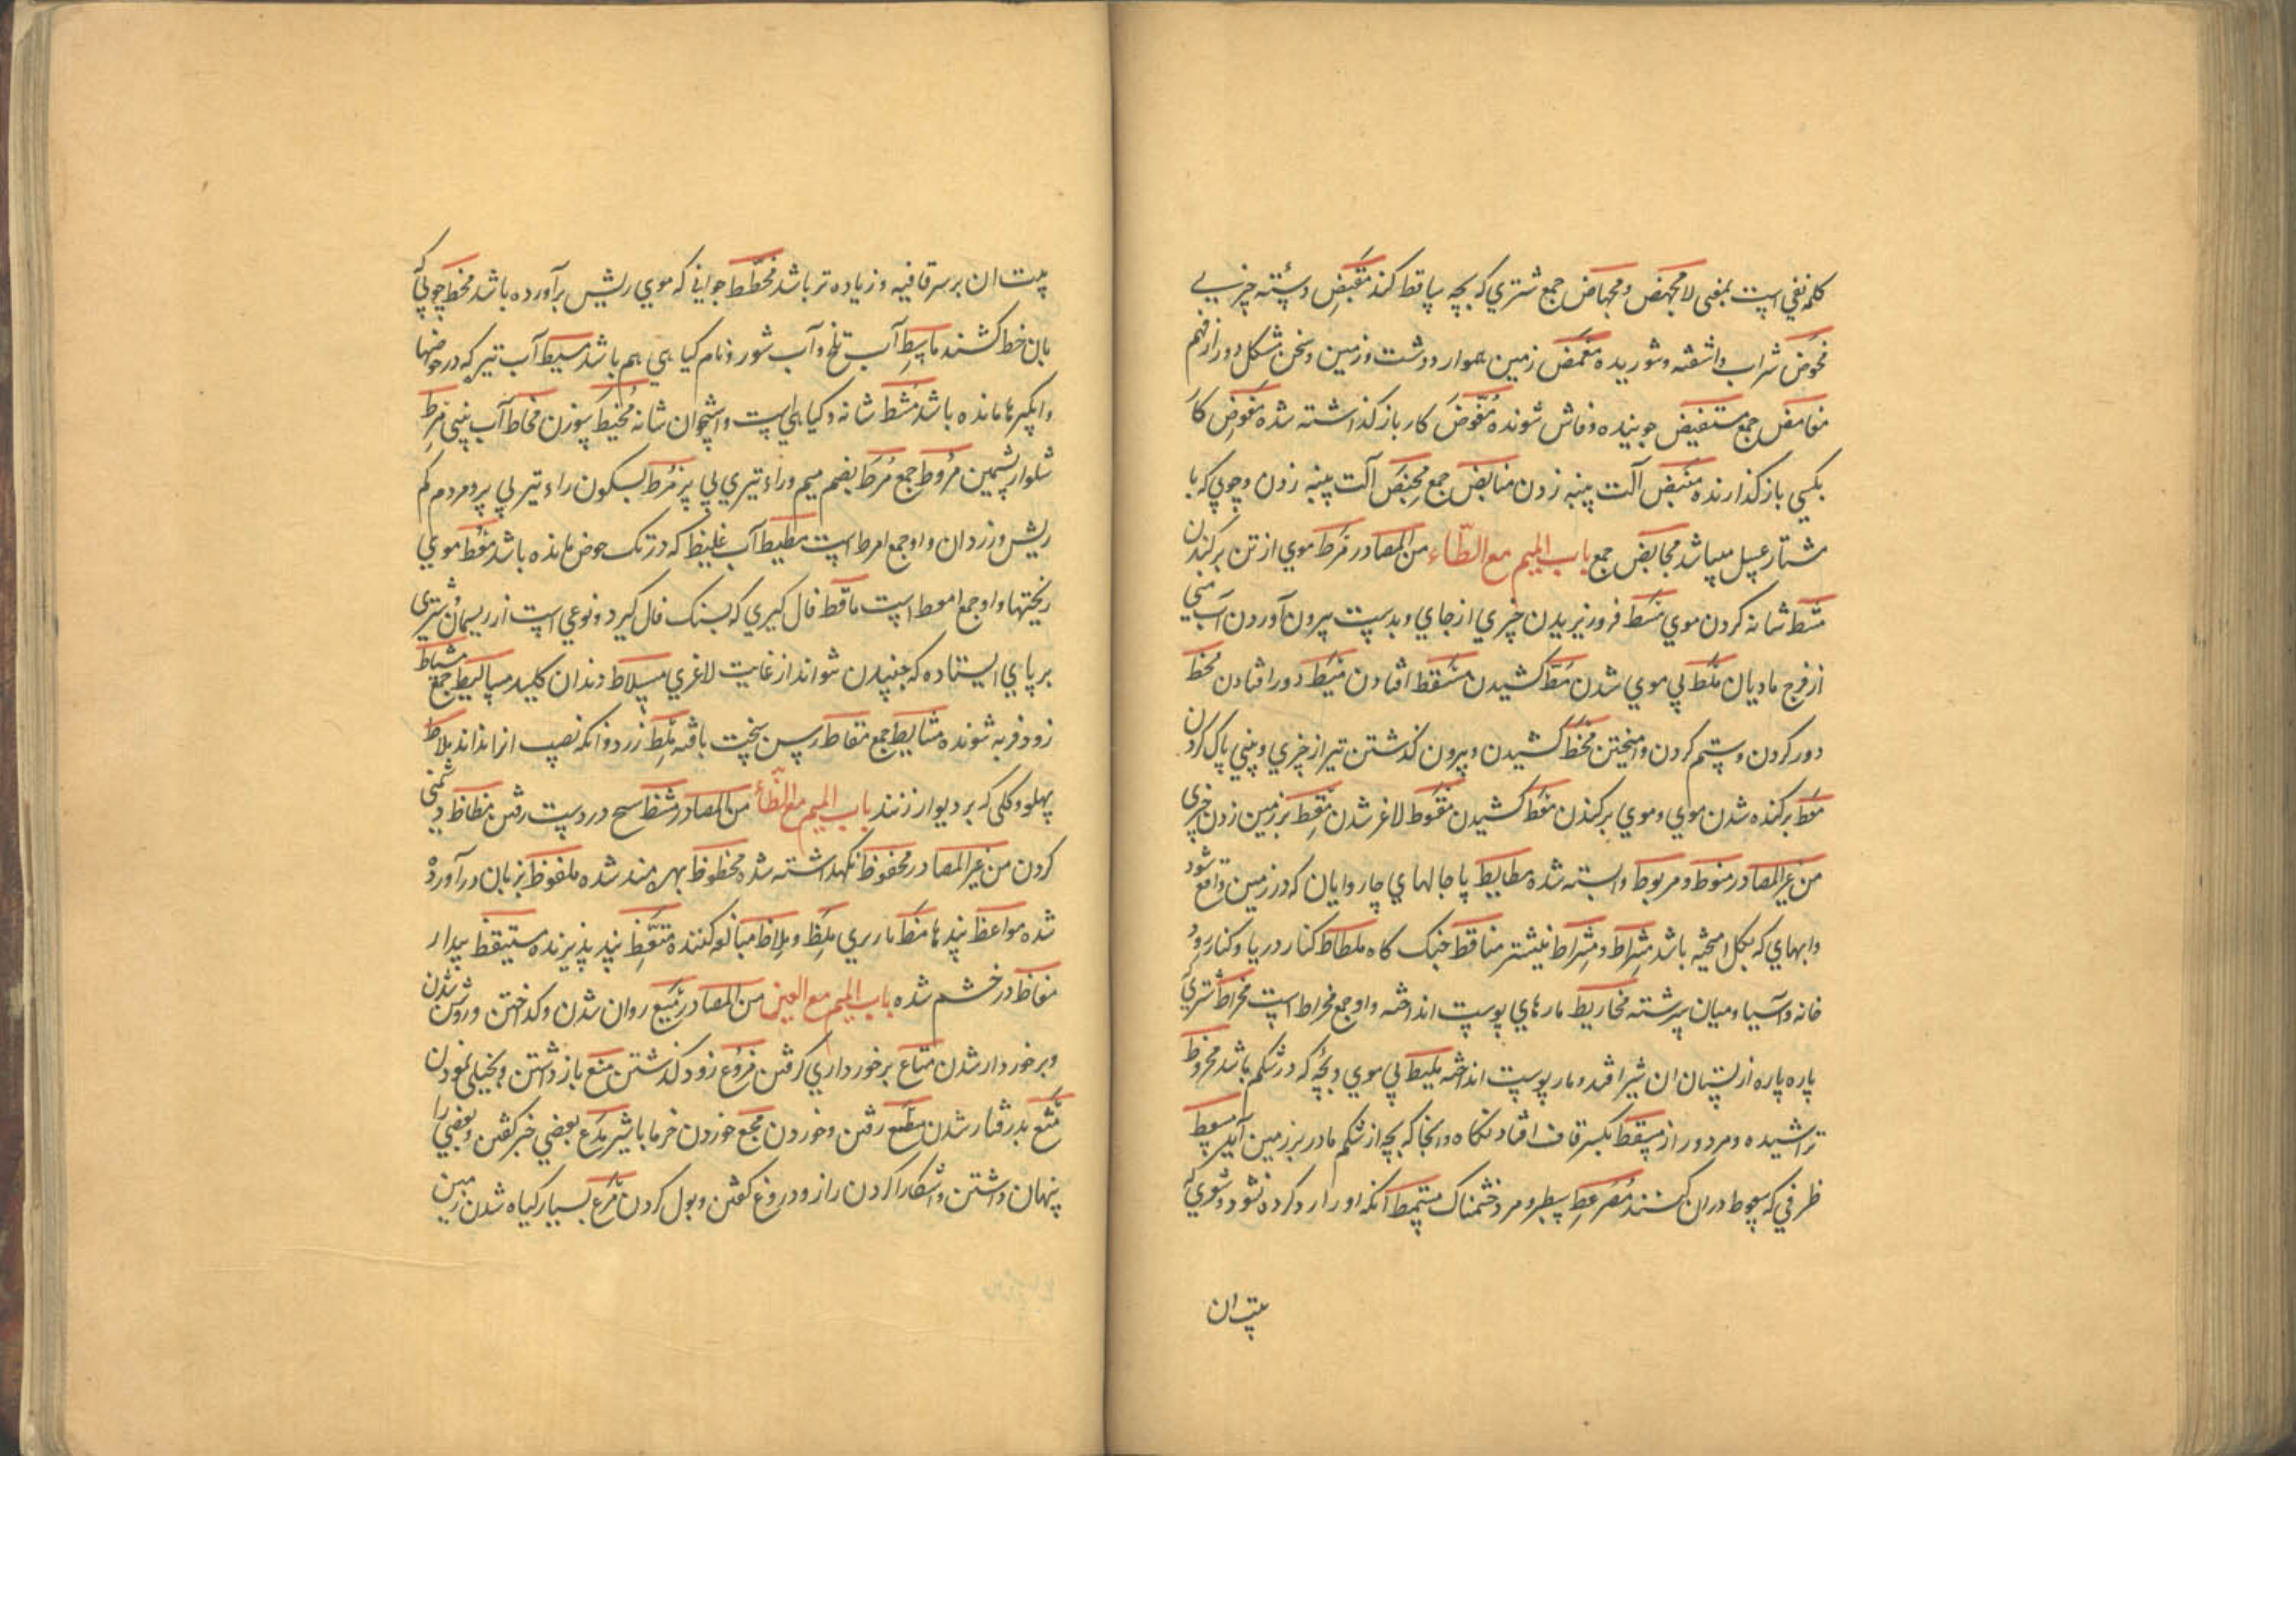 کلمه نفی است بمعنی لا مجهض و مجهاض جمع شتری که بچه ساقط کند مقبض دسته چیزی
مخوض شراب و اشفته و شوریده مغمض زمین هموار و دشت و زمین و سخن مشکل دور از فهم
مغامض جمع مستفیض جوینده و فاش شونده مفوض کار باز کذاشته شده مفوض کار
بکسی باز کذارنده منبض آلت پنبه زدن منابض جمع محبض آلت پنبه زدن و چوبی که با
مشتار عسل میباشد محابض جمع باب المیم مع الطاء من المصادر مرط موی از تن برکندن
مشط شانه کردن موی مسط فرو زیریدن چیزی از جای و بدست بیرون آوردن آب منی
از فرج مادیان ملط بی موی شدن مط کشیدن مسقط افتادن میط دور افتادن محط
دور کردن و ستم کردن و امیختن مخط کشیدن و بیرون کذشتن تیر از چیزی و بینی پاک کردن
معط برکنده شدن موی و موی برکندن مغط کشیدن مقوط لاغر شدن مقط بر زمین زدن چیزی
من غیر المصادر منوط و مربوط وابسته شده مطایط پاجالهای چاروایان که در زمین واقع شود
و ابهای که بکل امیخته باشد مشراط و مشراط نیشتر مناقط جنک کاه ملطاط کنار دریا و کنار رود
خانه و آسیا و میان سر شته مخاریط مارهای پوست انداخته و او جمع مخراط است مخراط شتری که
پاره پاره از پستان ان شیر افتد و مار پوست انداخته ملیط بی موی و بچه که در شکم باشد مخروط
تراشیده و مرد دراز مسقط بکسر قاف افتادنکاه و انجا که بچه از شکم مادر بر زمین آید مسعط
ظرفی که سعوط دران کنند سطبر و مرد خشمناک انکه او را رد کرده نشود و شعری که
بیت ان
بیت ان بر سر قافیه و زیاده تر باشد مخطط جوانی که موی ریش برآورده باشد مخط چوبی که
بان خط کشند ماسط آب تلخ و آب شور و نام کیاهی هم باشد مسیط آب تیره که در حوضها
و ابکیرها مانده باشد مشط شانه و کیاهی است و استخوان شانه مخیط سوزن مخاط آب بینی مرط
شلوار پشمین مروط جمع مرط بضم میم و راء تیری بی پر مرط بسکون راء تیر بی پر و مردم کم
ریش و زردان و او جمع امرط است مطیط آب غلیظ که در تک حوض مانده باشد معط موی
ریختها و او جمع امعط است ماقط فال کیری که بسنک فال کیرد و نوعی است از ریسمان و شتری
بر پای ایستاده که جنبیدن نتواند از غایت لاغری مسلاط دندان کلید مسالیط جمع مشیاط
زود فربه شونده مشاییط جمع مقاط رسن سخت بافته ملط زر دو انکه نصیب انرا ندانند ملاط
پهلو و کلی که بر دیوار زنند باب المیم مع الظاء من المصادر مشظ سیخ در دست رفتن مظاظ دشمنی
کردن من غیر المصادر محفوظ نکهداشته شده محظوظ بهره مند شده ملفوظ بزبان درآورده
شده مواعظ پندها مظ نار بری ملظ و ملاظ مبالغه کننده متعظ پند پذیرنده مستیقظ بیدار
مغاظ در خشم شده باب المیم مع العین من المصادر میع روان شدن و کداختن و روشن شدن
و برخوردار شدن متاع برخورداری کرفتن مزوع زود کذشتن منع باز داشتن و بخیلی نمودن
مثع بدرفتار شدن مطع رفتن و خوردن مجع خوردن خرما با شیر مذع بعضی خبر کفتن و بعضی را
پنهان داشتن و اشکارا کردن راز و دروغ کفتن و بول کردن مرع بسیار کیاه شدن زمین